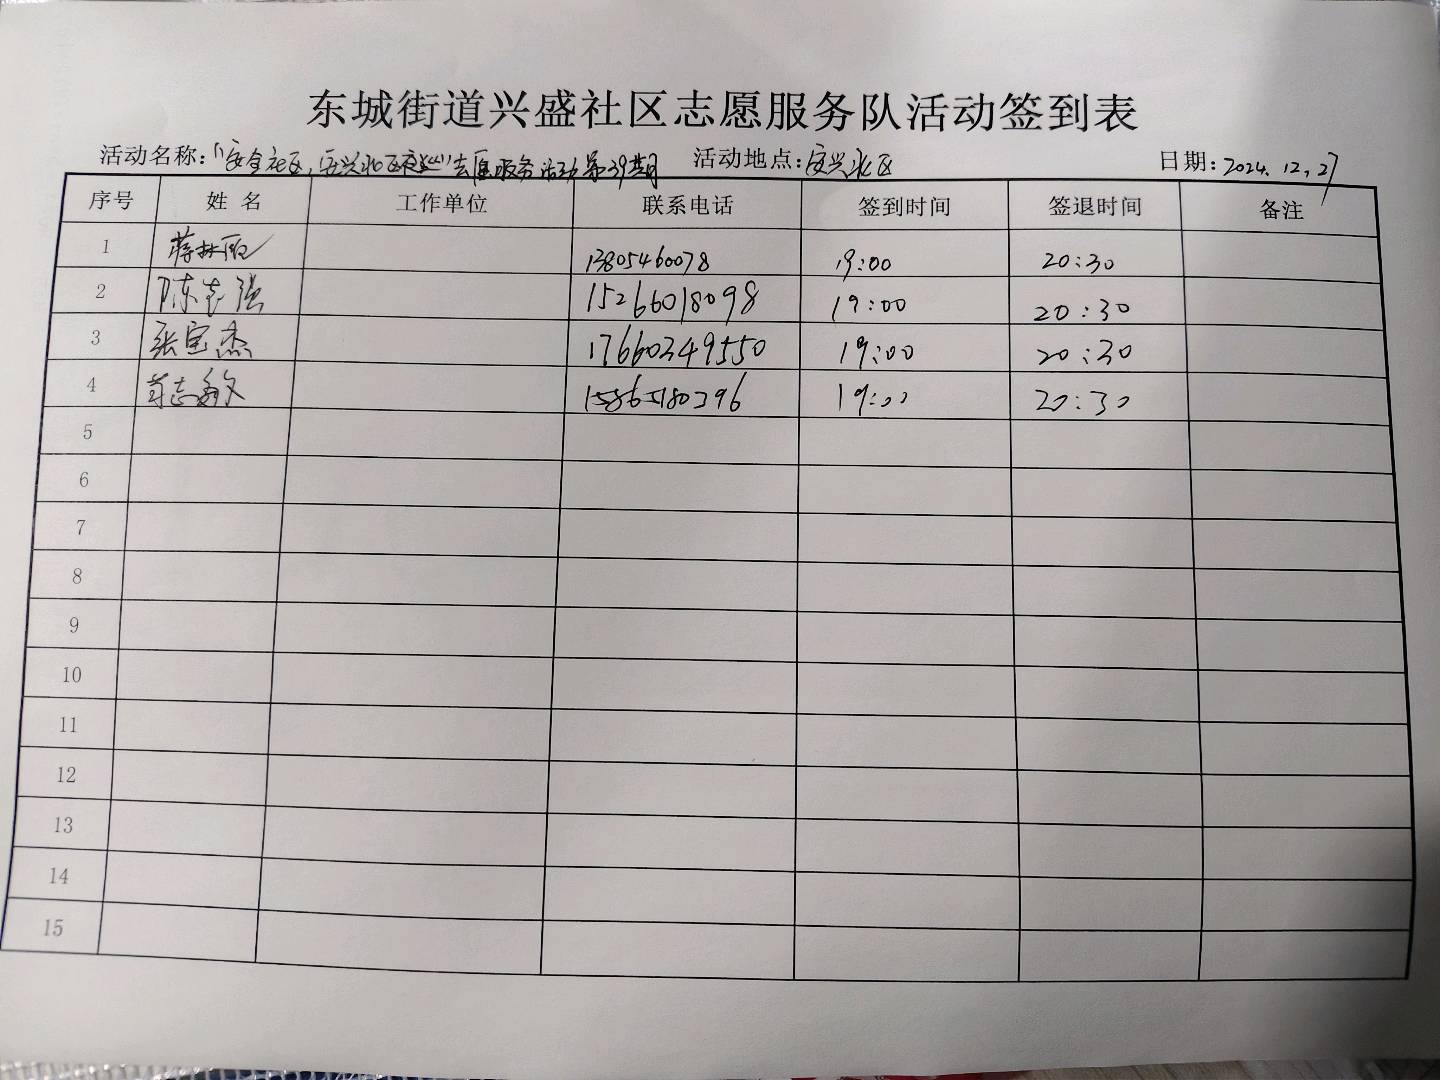 东城街道兴盛社区志愿服务队活动签到表
活动名称:"安全社区,安兴北区夜巡"志愿服务活动第39期 活动地点:安兴北区 日期:2024.12.27
序号 姓名 工作单位 联系电话 签到时间 签退时间 备注
1 蒋林 13805460078 19:00 20:30
2 陈志强 15266018098 19:00 20:30
3 张宝杰 17660349550 19:00 20:30
4 志敏 15865180396 19:00 20:30
5
6
7
8
9
10
11
12
13
14
15